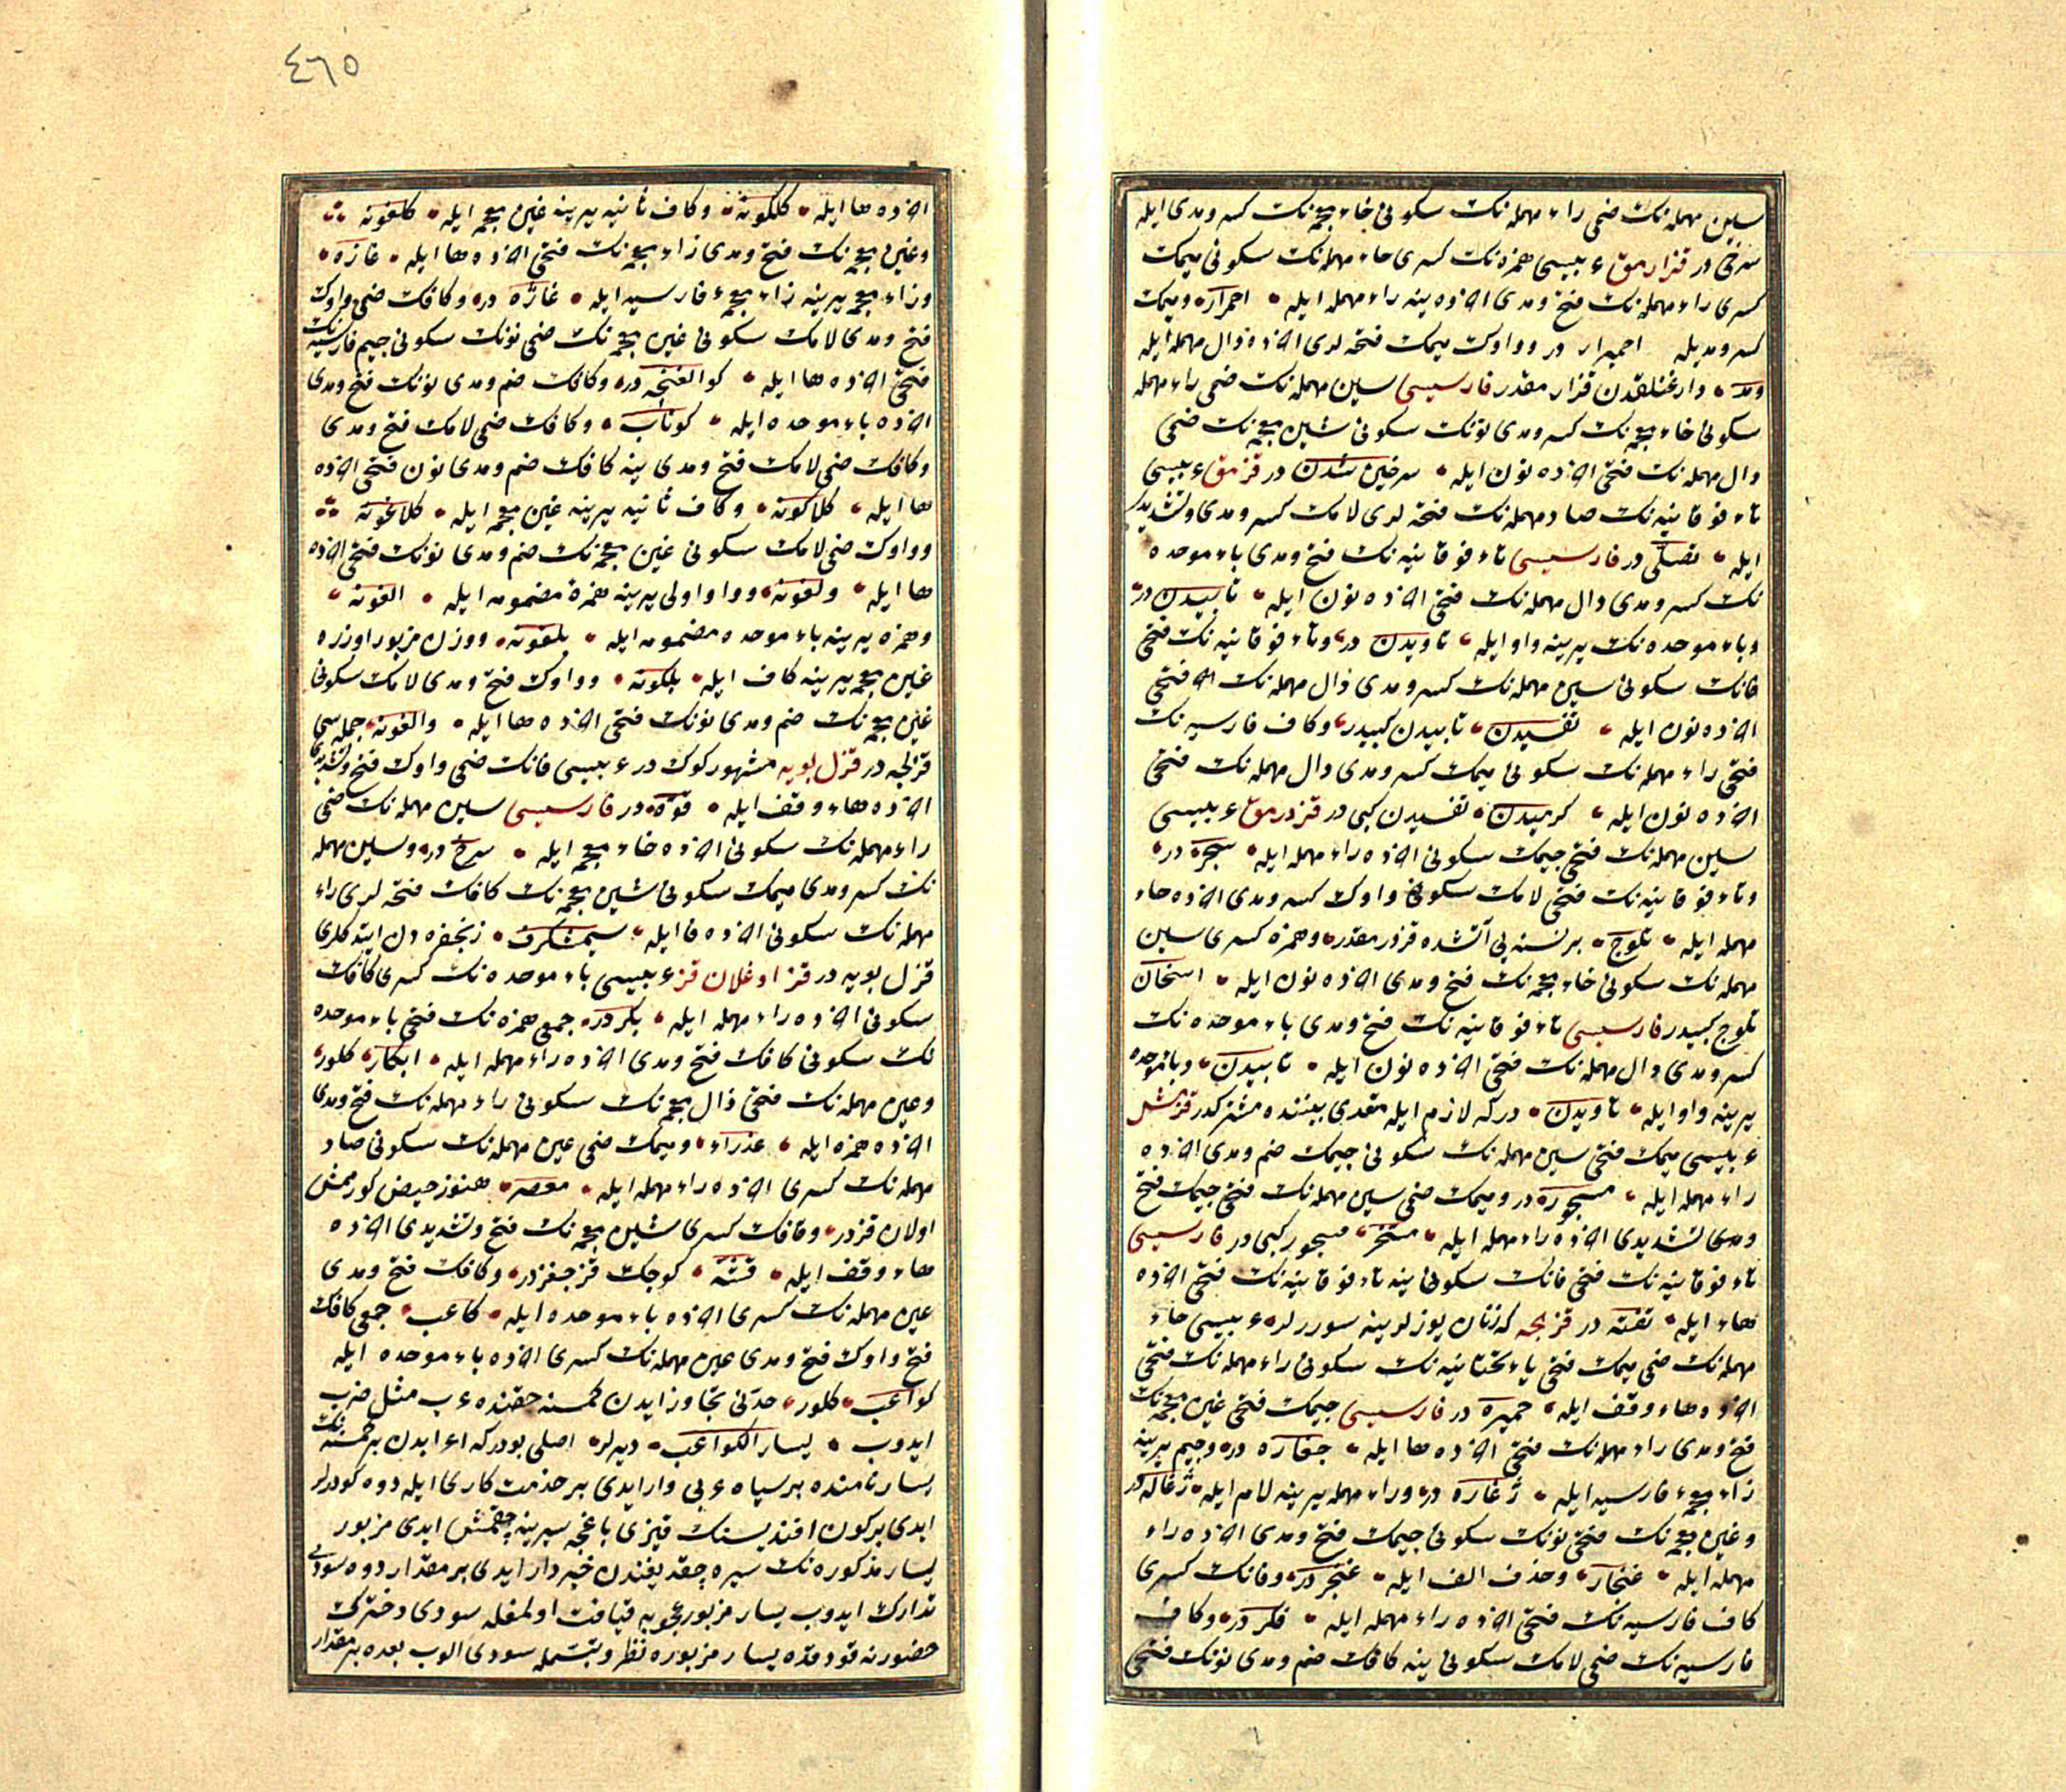 سین مهمله‌نک ضمی راء مهمله‌نک سکونی خاء معجمه‌نک کسر و مدی ایله
سرخی در قزارمق عربیسی همزه‌نک کسری حاء مهمله‌نک سکونی میمک
کسری راء مهمله‌نک فتح و مدی اخرده ینه راء مهمله ایله احمرار و میمک
کسر و مدیله احمیرار در و واوک میمک فتحه لری اخرده دال مهمله ایله
ومد وارغنلقدن قزارمقدر فارسیسی سین مهمله‌نک ضمی راء مهمله
سکونی خاء معجمه‌نک کسر و مدی نونک سکونی شین معجمه‌نک ضمی
دال مهمله‌نک فتحی اخرده نون ایله سرخین شدن در قزمق عربیسی
تاء فوقانیه‌نک صاد مهمله‌نک فتحه لری لامک کسر و مدی و تشدیدی
ایله تصلی در فارسیسی تاء فوقانیه‌نک فتح و مدی باء موحده
نک کسر و مدی دال مهمله‌نک فتحی اخرده نون ایله تابیدن در
وباء موحده‌نک یرینه واو ایله تاویدن در وتاء فوقانیه‌نک فتحی
فانک سکونی سین مهمله‌نک کسر و مدی دال مهمله‌نک فتحی
اخرده نون ایله تفسیدن تابیدن کبیدر و کاف فارسیه‌نک
فتحی راء مهمله‌نک سکونی میمک کسر و مدی دال مهمله‌نک فتحی
اخرده نون ایله کرمیدن تفسیدن کبی در قزدرمق عربیسی
سین مهمله‌نک فتحی جیمک سکونی اخرده راء مهمله ایله سجر در
وتاء فوقانیه‌نک فتحی لامک سکونی واوک کسر و مدی اخرده حاء
مهمله ایله تلویح برنسنه یی آتشده قزدرمقدر و همزه کسری سین
مهمله‌نک سکونی خاء معجمه‌نک فتح و مدی اخرده نون ایله اسخان
تلویح کبیدر فارسیسی تاء فوقانیه‌نک فتح و مدی باء موحده‌نک
کسر و مدی دال مهمله‌نک فتحی اخرده نون ایله تابیدن وباء موحده
یرینه واو ایله تاویدن در که لازم ایله متعدی بیننده مشترکدر قزمش
عربیسی میمک فتحی سین مهمله‌نک سکونی جیمک ضم و مدی اخرده
راء مهمله ایله مسجور در و میمک ضمی سین مهمله‌نک فتحی جیمک فتح
و تشدیدی اخرده راء مهمله ایله مسجر مسجور کبی در فارسیسی
تاء فوقانیه‌نک فتحی فانک سکونی ینه تاء فوقانیه‌نک فتحی اخرده
هاء ایله تفته در قزلجه که زنان یوزلرینه سوررلر عربیسی حاء
مهمله‌نک ضمی میمک فتحی یاء تحتانیه‌نک سکونی راء مهمله‌نک فتحی
اخرده هاء وقف ایله حمیره در فارسیسی جیمک فتحی غین معجمه‌نک
فتح و مدی راء مهمله‌نک فتحی اخرده ها ایله جغاره در و جیم یرینه
زاء معجمه فارسیه ایله ژغاره در و راء مهمله یرینه لام ایله ژغاله در
وغین معجمه‌نک فتحی نونک سکونی جیمک فتح و مدی اخرده راء
مهمله ایله غنجار وحذف الف ایله غنجر در و فانک کسری
کاف فارسیه‌نک فتحی اخرده راء مهمله ایله فکر در و کاف
فارسیه‌نک ضمی لامک سکونی ینه کافک ضم و مدی نونک فتحی
٤٦٥
اخرده ها ایله کلکونه و کاف ثانیه یرینه غین معجمه ایله کلغونه
وغین معجمه‌نک فتح و مدی زاء معجمه‌نک فتحی اخرده ها ایله غازه
وزاء معجمه یرینه زاء معجمه فارسیه ایله غاژه در و کافک ضمی واوک
فتح و مدی لامک سکونی غین معجمه‌نک ضمی نونک سکونی جیم فارسیه‌نک
فتحی اخرده ها ایله کوالغنچه در و کافک ضم و مدی نونک فتح و مدی
اخرده باء موحده ایله کوناب و کافک ضمی لامک فتح و مدی
وکافک ضمی لامک فتح و مدی ینه کافک ضم و مدی نون فتحی اخرده
ها ایله کلاکونه و کاف ثانیه یرینه غین معجمه ایله کلاغونه
و واوک ضمی لامک سکونی غین معجمه‌نک ضم و مدی نونک فتحی اخرده
ها ایله ولغونه و واو اولی یرینه همزه مضمومه ایله الغونه
وهمزه یرینه باء موحده مضمومه ایله بلغونه و وزن مزبور اوزره
غین معجمه یرینه کاف ایله بلکونه و واوک فتح و مدی لامک سکونی
غین معجمه‌نک ضم و مدی نونک فتحی اخرده ها ایله والغونه جمله سی
قزلجه در قزل بویه مشهور کوک در عربیسی فانک ضمی واوک فتح و تشدیدی
اخرده هاء وقف ایله فوّه در فارسیسی سین مهمله‌نک ضمی
راء مهمله‌نک سکونی اخرده خاء معجمه ایله سرخ در و سین مهمله
نک کسر و مدی میمک سکونی شین معجمه‌نک کافک فتحه لری راء
مهمله‌نک سکونی اخرده فا ایله سیمشکرف زنجفره دن ایتدکلری
قزل بویه در قز اوغلان قز عربیسی باء موحده‌نک کسری کافک
سکونی اخرده راء مهمله ایله بکر در جمعی همزه‌نک فتحی باء موحده
نک سکونی کافک فتح و مدی اخرده راء مهمله ایله ابکار کلور
وعین مهمله‌نک فتحی ذال معجمه‌نک سکونی راء مهمله‌نک فتح و مدی
اخرده همزه ایله عذراء و میمک ضمی عین مهمله‌نک سکونی صاد
مهمله‌نک کسری اخرده راء مهمله ایله معصر هنوز حیض کورمش
اولان قزدر و قافک کسری شین معجمه‌نک فتح و تشدیدی اخرده
هاء وقف ایله قشّه کوجک قزجغزدر و کافک فتح و مدی
عین مهمله‌نک کسری اخرده باء موحده ایله کاعب جمعی کافک
فتح واوک فتح و مدی عین مهمله‌نک کسری اخرده باء موحده ایله
کواعب کلور حدنی تجاوز ایدن کمسنه حقنده عرب مثل ضرب
ایدوب یسار الکواعب دیرلر اصلی بودرکه
یسار نامنده بر سیاه عربی وار ایدی بر خدمت کاری ایله دوه کودرلر
ایدی برکون افندیسنک قیزی باغچه سیرینه چقمش ایدی مزبور
یسار مذکوره‌نک سیره چقدیغندن خبردار ایدی بر مقدار دوه سودی
تدارک ایدوب یسار مزبور عجوبه قیافت اولمغله سودی دخترک
حضورنه قودقده یسار مزبوره نظر و تبسمله سودی الوب بعده بر مقدار